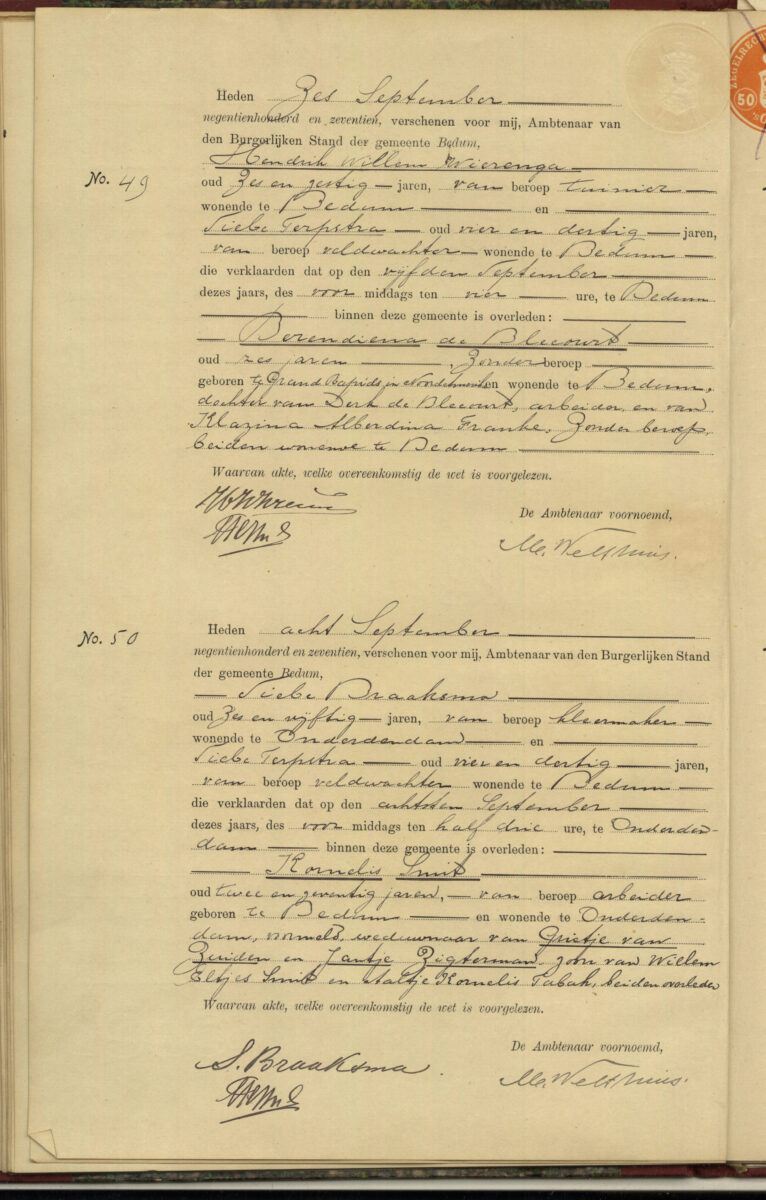 Heden Zes September
negentienhonderd en zeventien, verschenen voor mij, Ambtenaar van
den Burgerlijken Stand der gemeente Bedum,
Hendrik Willem Wierenga
No. 49
oud Zes en zestig jaren, van beroep tuinier
wonende te Bedum en
Siebe Terpstra oud vier en dertig jaren,
van beroep veldwachter wonende te Bedum
die verklaarden dat op den vijfden September
dezes jaars, des voor middags ten vier ure, te Bedum
binnen deze gemeente is overleden:
Berendiena de Blecourt
oud zes jaren, Zonder beroep
geboren te Grand Rapids in Noordamerika en wonende te Bedum,
dochter van Derk de Blecourt, arbeider, en van
Klazina Alberdina Franke, Zonder beroep,
beiden wonende te Bedum
Waarvan akte, welke overeenkomstig de wet is voorgelezen.
De Ambtenaar voornoemd,
Velthuis.
No. 50
Heden acht September
negentienhonderd en zeventien, verschenen voor mij, Ambtenaar van den Burgerlijken Stand
der gemeente Bedum,
Siebe Braaksma
oud Zes en vijftig jaren, van beroep kleermaker
wonende te Onderdendam en
Siebe Terpstra oud vier en dertig jaren,
van beroep veldwachter wonende te Bedum
die verklaarden dat op den achtsten September
dezes jaars, des voor middags ten half drie ure, te Onderden-
dam binnen deze gemeente is overleden:
Kornelis Smit
oud twee en zeventig jaren, van beroep arbeider
geboren te Bedum en wonende te Onderden-
dam, voormeld, weduwnaar van Grietje van
Zuiden en Jantje Zigterman, zoon van Willem
Eltjes Smit en Aaltje Kornelis Tabak, beiden overleden
Waarvan akte, welke overeenkomstig de wet is voorgelezen.
De Ambtenaar voornoemd,
S. Braaksma.
Velthuis.
ZEGELRECHT
50